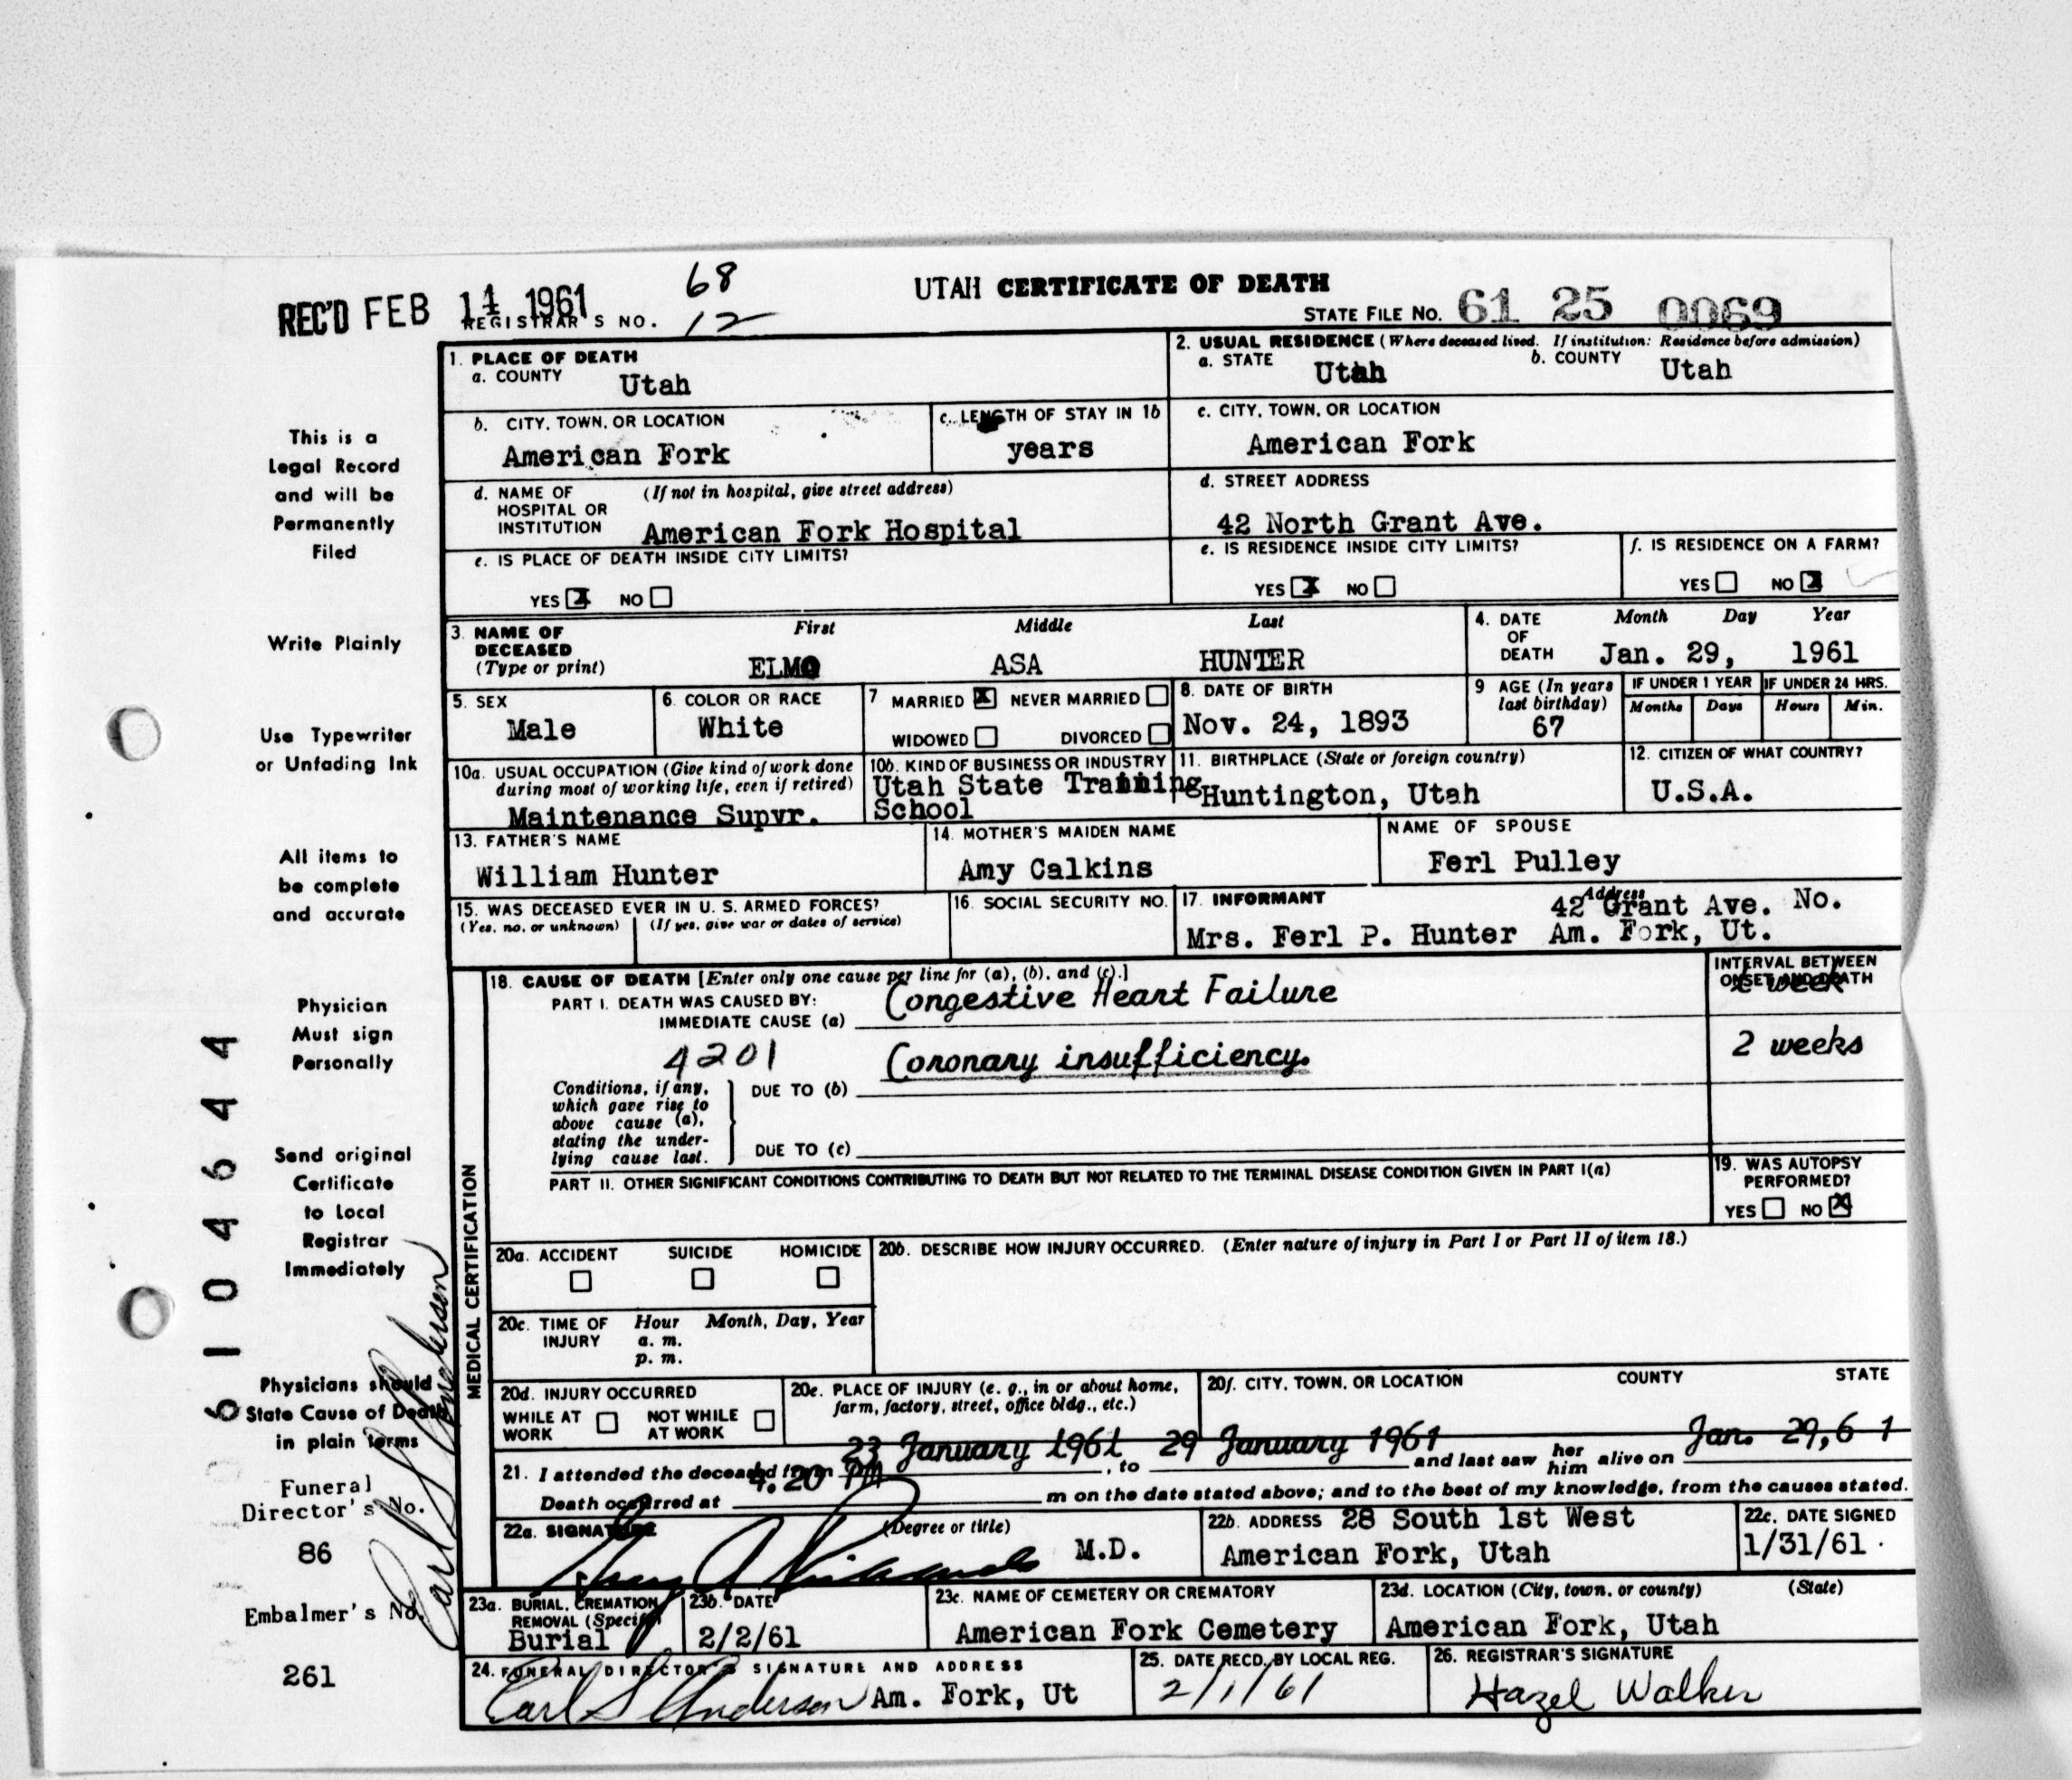 REC'D FEB 14 1961
68
REGISTRAR'S NO. 12
UTAH CERTIFICATE OF DEATH
STATE FILE No. 61 25 0069
1. PLACE OF DEATH
a. COUNTY Utah
2. USUAL RESIDENCE (Where deceased lived. If institution: Residence before admission)
a. STATE Utah b. COUNTY Utah
b. CITY, TOWN, OR LOCATION American Fork
c. LENGTH OF STAY IN 1b years
c. CITY, TOWN, OR LOCATION American Fork
d. NAME OF HOSPITAL OR INSTITUTION (If not in hospital, give street address) American Fork Hospital
d. STREET ADDRESS 42 North Grant Ave.
e. IS PLACE OF DEATH INSIDE CITY LIMITS?
YES X NO
e. IS RESIDENCE INSIDE CITY LIMITS?
YES X NO
f. IS RESIDENCE ON A FARM?
YES NO X
3. NAME OF DECEASED (Type or print)
First Middle Last
ELMO ASA HUNTER
4. DATE OF DEATH
Month Day Year
Jan. 29, 1961
5. SEX Male
6. COLOR OR RACE White
7 MARRIED X NEVER MARRIED
WIDOWED DIVORCED
8. DATE OF BIRTH Nov. 24, 1893
9 AGE (In years last birthday) 67
IF UNDER 1 YEAR Months Days
IF UNDER 24 HRS. Hours Min.
10a. USUAL OCCUPATION (Give kind of work done during most of working life, even if retired) Maintenance Supvr.
10b. KIND OF BUSINESS OR INDUSTRY Utah State Training School
11. BIRTHPLACE (State or foreign country) Huntington, Utah
12. CITIZEN OF WHAT COUNTRY? U.S.A.
13. FATHER'S NAME William Hunter
14. MOTHER'S MAIDEN NAME Amy Calkins
NAME OF SPOUSE Ferl Pulley
15. WAS DECEASED EVER IN U. S. ARMED FORCES?
(Yes, no, or unknown) (If yes, give war or dates of service)
16. SOCIAL SECURITY NO.
17. INFORMANT Mrs. Ferl P. Hunter
Address 42 Grant Ave. No.
Am. Fork, Ut.
18. CAUSE OF DEATH [Enter only one cause per line for (a), (b), and (c).]
INTERVAL BETWEEN ONSET AND DEATH
PART I. DEATH WAS CAUSED BY:
IMMEDIATE CAUSE (a) Congestive Heart Failure week
4201
Conditions, if any, which gave rise to above cause (a), stating the underlying cause last.
DUE TO (b) Coronary insufficiency. 2 weeks
DUE TO (c)
PART II. OTHER SIGNIFICANT CONDITIONS CONTRIBUTING TO DEATH BUT NOT RELATED TO THE TERMINAL DISEASE CONDITION GIVEN IN PART I(a)
19. WAS AUTOPSY PERFORMED?
YES NO X
MEDICAL CERTIFICATION
20a. ACCIDENT SUICIDE HOMICIDE
20b. DESCRIBE HOW INJURY OCCURRED. (Enter nature of injury in Part I or Part II of item 18.)
20c. TIME OF INJURY Hour a. m. p. m. Month, Day, Year
20d. INJURY OCCURRED
WHILE AT WORK NOT WHILE AT WORK
20e. PLACE OF INJURY (e. g., in or about home, farm, factory, street, office bldg., etc.)
20f. CITY, TOWN, OR LOCATION COUNTY STATE
21. I attended the deceased from 23 January 1961, to 29 January 1961 and last saw her him alive on Jan. 29, 61
Death occurred at 4:20 PM m on the date stated above; and to the best of my knowledge, from the causes stated.
22a. SIGNATURE (Degree or title) M.D.
22b. ADDRESS 28 South 1st West
American Fork, Utah
22c. DATE SIGNED 1/31/61
23a. BURIAL, CREMATION REMOVAL (Specify) Burial
23b. DATE 2/2/61
23c. NAME OF CEMETERY OR CREMATORY American Fork Cemetery
23d. LOCATION (City, town, or county) (State) American Fork, Utah
24. FUNERAL DIRECTOR'S SIGNATURE AND ADDRESS
Earl S Anderson Am. Fork, Ut
25. DATE RECD. BY LOCAL REG. 2/1/61
26. REGISTRAR'S SIGNATURE Hazel Walker
This is a
Legal Record
and will be
Permanently
Filed
Write Plainly
Use Typewriter
or Unfading Ink
All items to
be complete
and accurate
Physician
Must sign
Personally
Send original
Certificate
to Local
Registrar
Immediately
Physicians should
State Cause of Death
in plain terms
Funeral
Director's No.
86
Embalmer's No.
261
Earl S Anderson
6104644